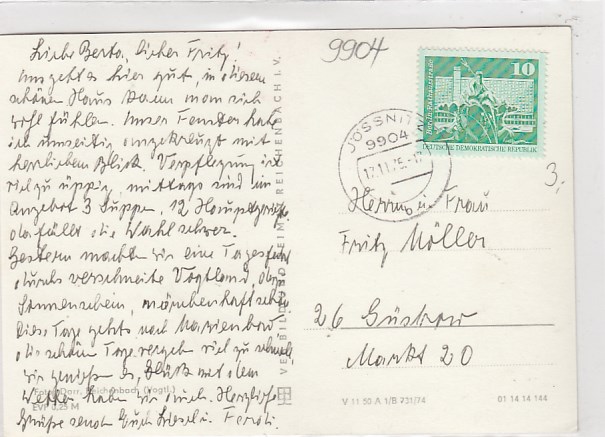 Liebe Berta, lieber Fritz!
Uns geht es hier gut, in diesem
schönen Haus kann man sich
wohl fühlen. Unser Fenster habe
ich umseitig angekreuzt mit
herrlichem Blick. Verpflegung ist
viel zu üppig, mittags sind im
Angebot 3 Suppen, 12 Hauptgerichte
da fällt die Wahl schwer.
Gestern machten wir eine Tagesfahrt
durchs verschneite Vogtland, bei
Sonnenschein, märchenhaft schön
Diese Tage gehts nach
die schönen Tage vergehen viel zu schnell,
wir genießen es, Glück mit dem
Wetter haben wir auch. Herzliche
Grüße senden Euch Liesel u.
Foto: Darr, Reichenbach (Vogtl.)
EVP 0,25 M
VEB BILD UND HEIMAT REICHENBACH I. V.
9904
10
Berlin, Rathausstraße
DEUTSCHE DEMOKRATISCHE REPUBLIK
JÖSSNITZ
9904
17.11.75
3.
Herrn u. Frau
Fritz Möller
26 Güstrow
Markt 20
V 11 50 A 1/B 731/74
01 14 14 144